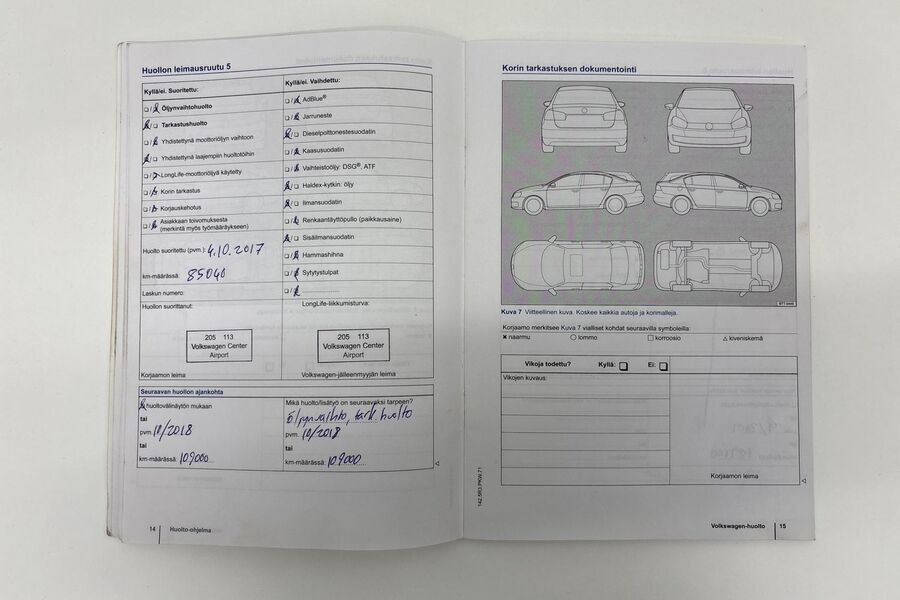 Huollon leimausruutu 5
Kyllä/ei. Suoritettu:
Öljynvaihtohuolto
Tarkastushuolto
Yhdistettynä moottoriöljyn vaihtoon
Yhdistettynä laajempiin huoltotöihin
LongLife-moottoriöljyä käytetty
Korin tarkastus
Korjauskehotus
Asiakkaan toivomuksesta
(merkintä myös työmääräykseen)
Huolto suoritettu (pvm.): 4.10.2017
km-määrässä: 85040
Laskun numero:
Huollon suorittanut:
205 113
Volkswagen Center
Airport
Korjaamon leima
Kyllä/ei. Vaihdettu:
AdBlue®
Jarruneste
Dieselpolttonestesuodatin
Kaasusuodatin
Vaihteistoöljy: DSG®, ATF
Haldex-kytkin: öljy
Ilmansuodatin
Renkaantäyttöpullo (paikkausaine)
Sisäilmansuodatin
Hammashihna
Sytytystulpat
LongLife-liikkumisturva:
205 113
Volkswagen Center
Airport
Volkswagen-jälleenmyyjän leima
Seuraavan huollon ajankohta
huoltovälinäytön mukaan
tai
pvm. 10/2018
tai
km-määrässä: 109000
Mikä huolto/lisätyö on seuraavaksi tarpeen?
öljynvaihto, tark. huolto
pvm. 10/2018
tai
km-määrässä: 109000
14 Huolto-ohjelma
Korin tarkastuksen dokumentointi
Kuva 7 Viitteellinen kuva. Koskee kaikkia autoja ja korimalleja.
Korjaamo merkitsee Kuva 7 vialliset kohdat seuraavilla symboleilla:
naarmu lommo korroosio kiveniskemä
Vikoja todettu? Kyllä: Ei:
Vikojen kuvaus:
Korjaamon leima
142.5R3.PKW.71
Volkswagen-huolto 15